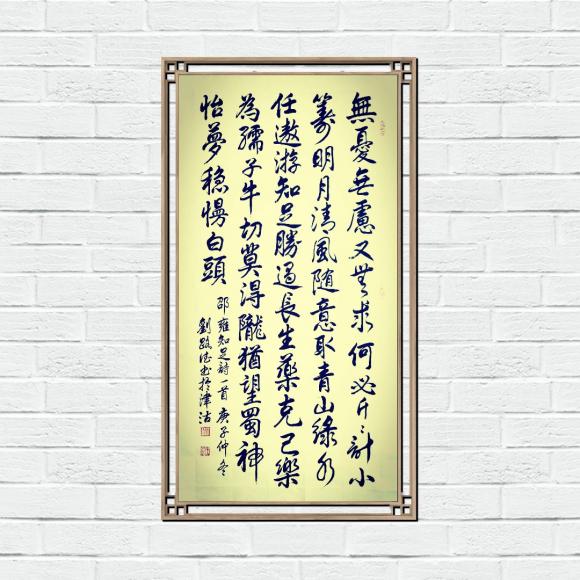 無憂無慮又無求何必斤斤計小
籌明月清風隨意取青山綠水
任遨游知足勝過長生藥克己樂
為孺子牛切莫得隴猶望蜀神
怡夢穩慢白頭
邵雍知足詩一首庚子仲冬
劉 書於津沽